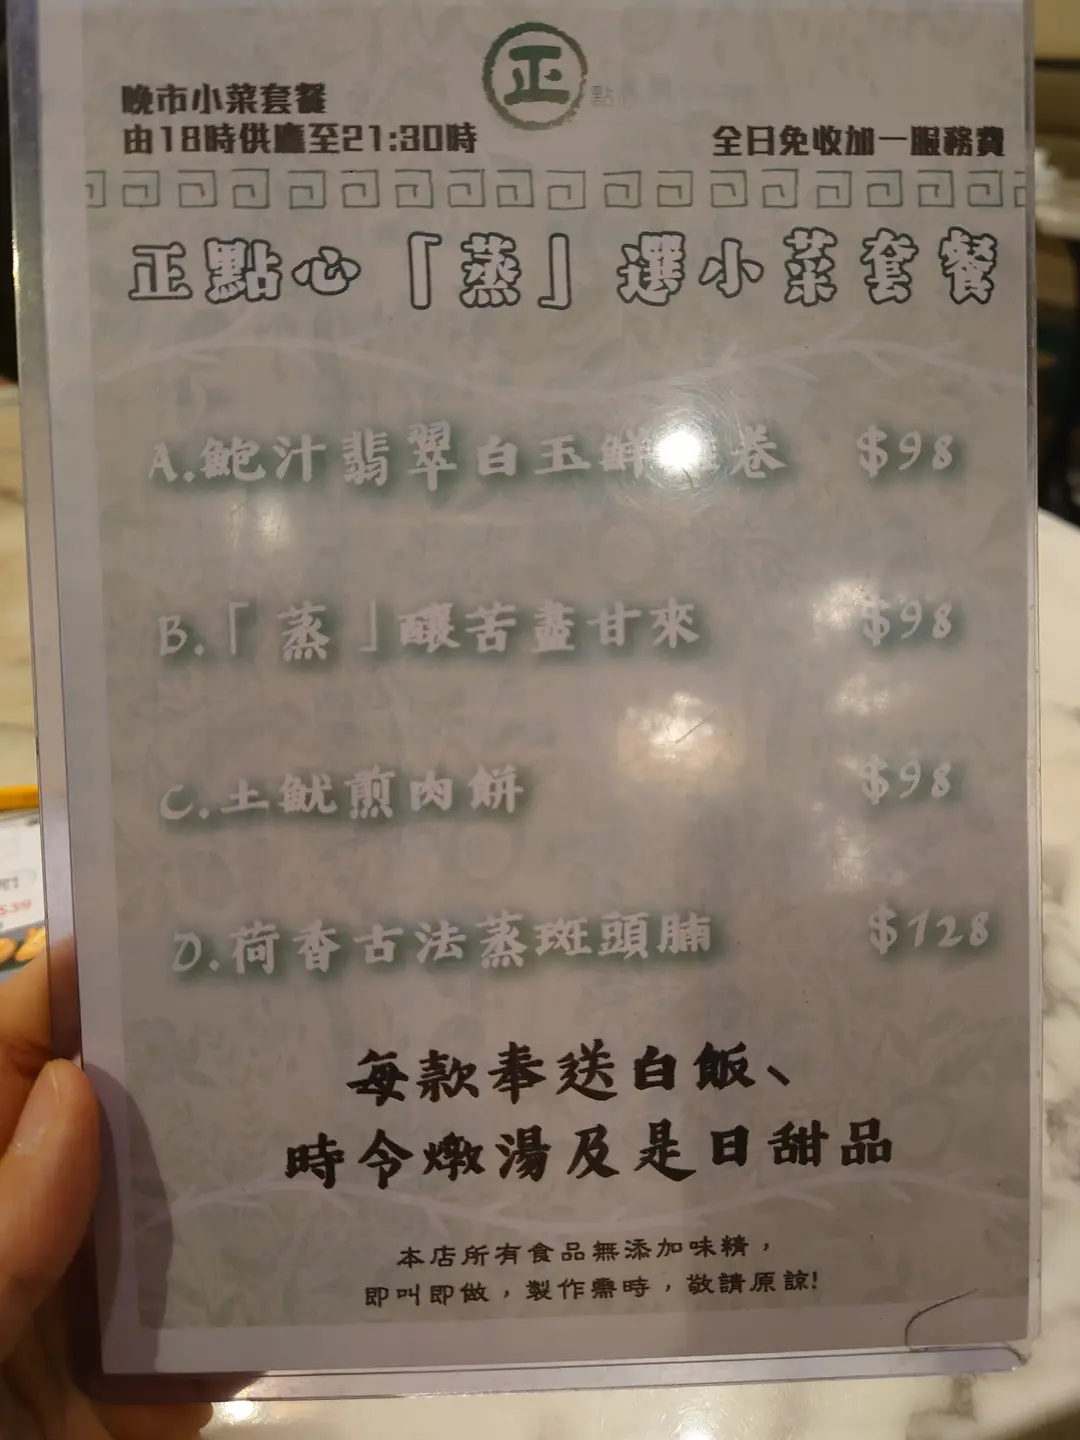 正
晚市小菜套餐
由18時供應至21:30時
全日免收加一服務費
正點心「蒸」選小菜套餐
A.鮑汁翡翠白玉鮮 卷 $98
B.「蒸」釀苦盡甘來 $98
C.土魷煎肉餅 $98
D.荷香古法蒸斑頭腩 $128
每款奉送白飯、
時令燉湯及是日甜品
本店所有食品無添加味精，
即叫即做，製作需時，敬請原諒!